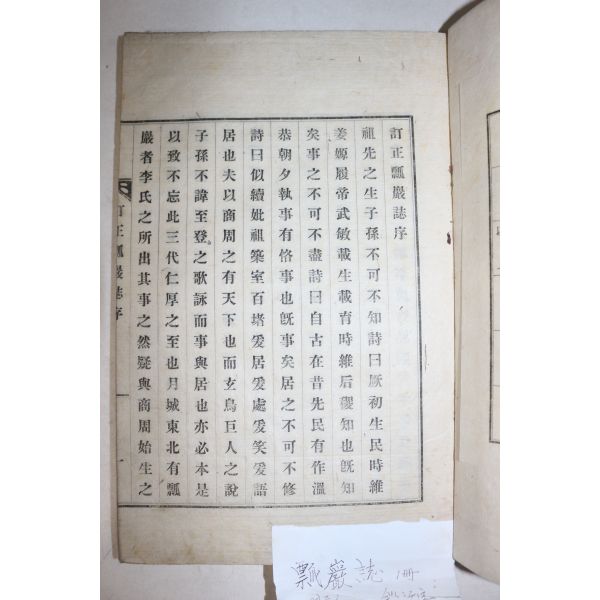 訂正瓢巖誌序
祖先之生子孫不可不知詩曰厥初生民時維
姜嫄履帝武敏載生載育時維后稷知也旣知
矣事之不可不盡詩曰自古在昔先民有作溫
恭朝夕執事有恪事也旣事矣居之不可不修
詩曰似續妣祖築室百堵爰居爰處爰笑爰語
居也夫以商周之有天下也而玄鳥巨人之說
子孫不諱至登之歌詠而事與居也亦必本是
以致不忘此三代仁厚之至也月城東北有瓢
巖者李氏之所出其事之然疑與商周始生之
訂正瓢巖誌序
一
瓢巖誌 1冊